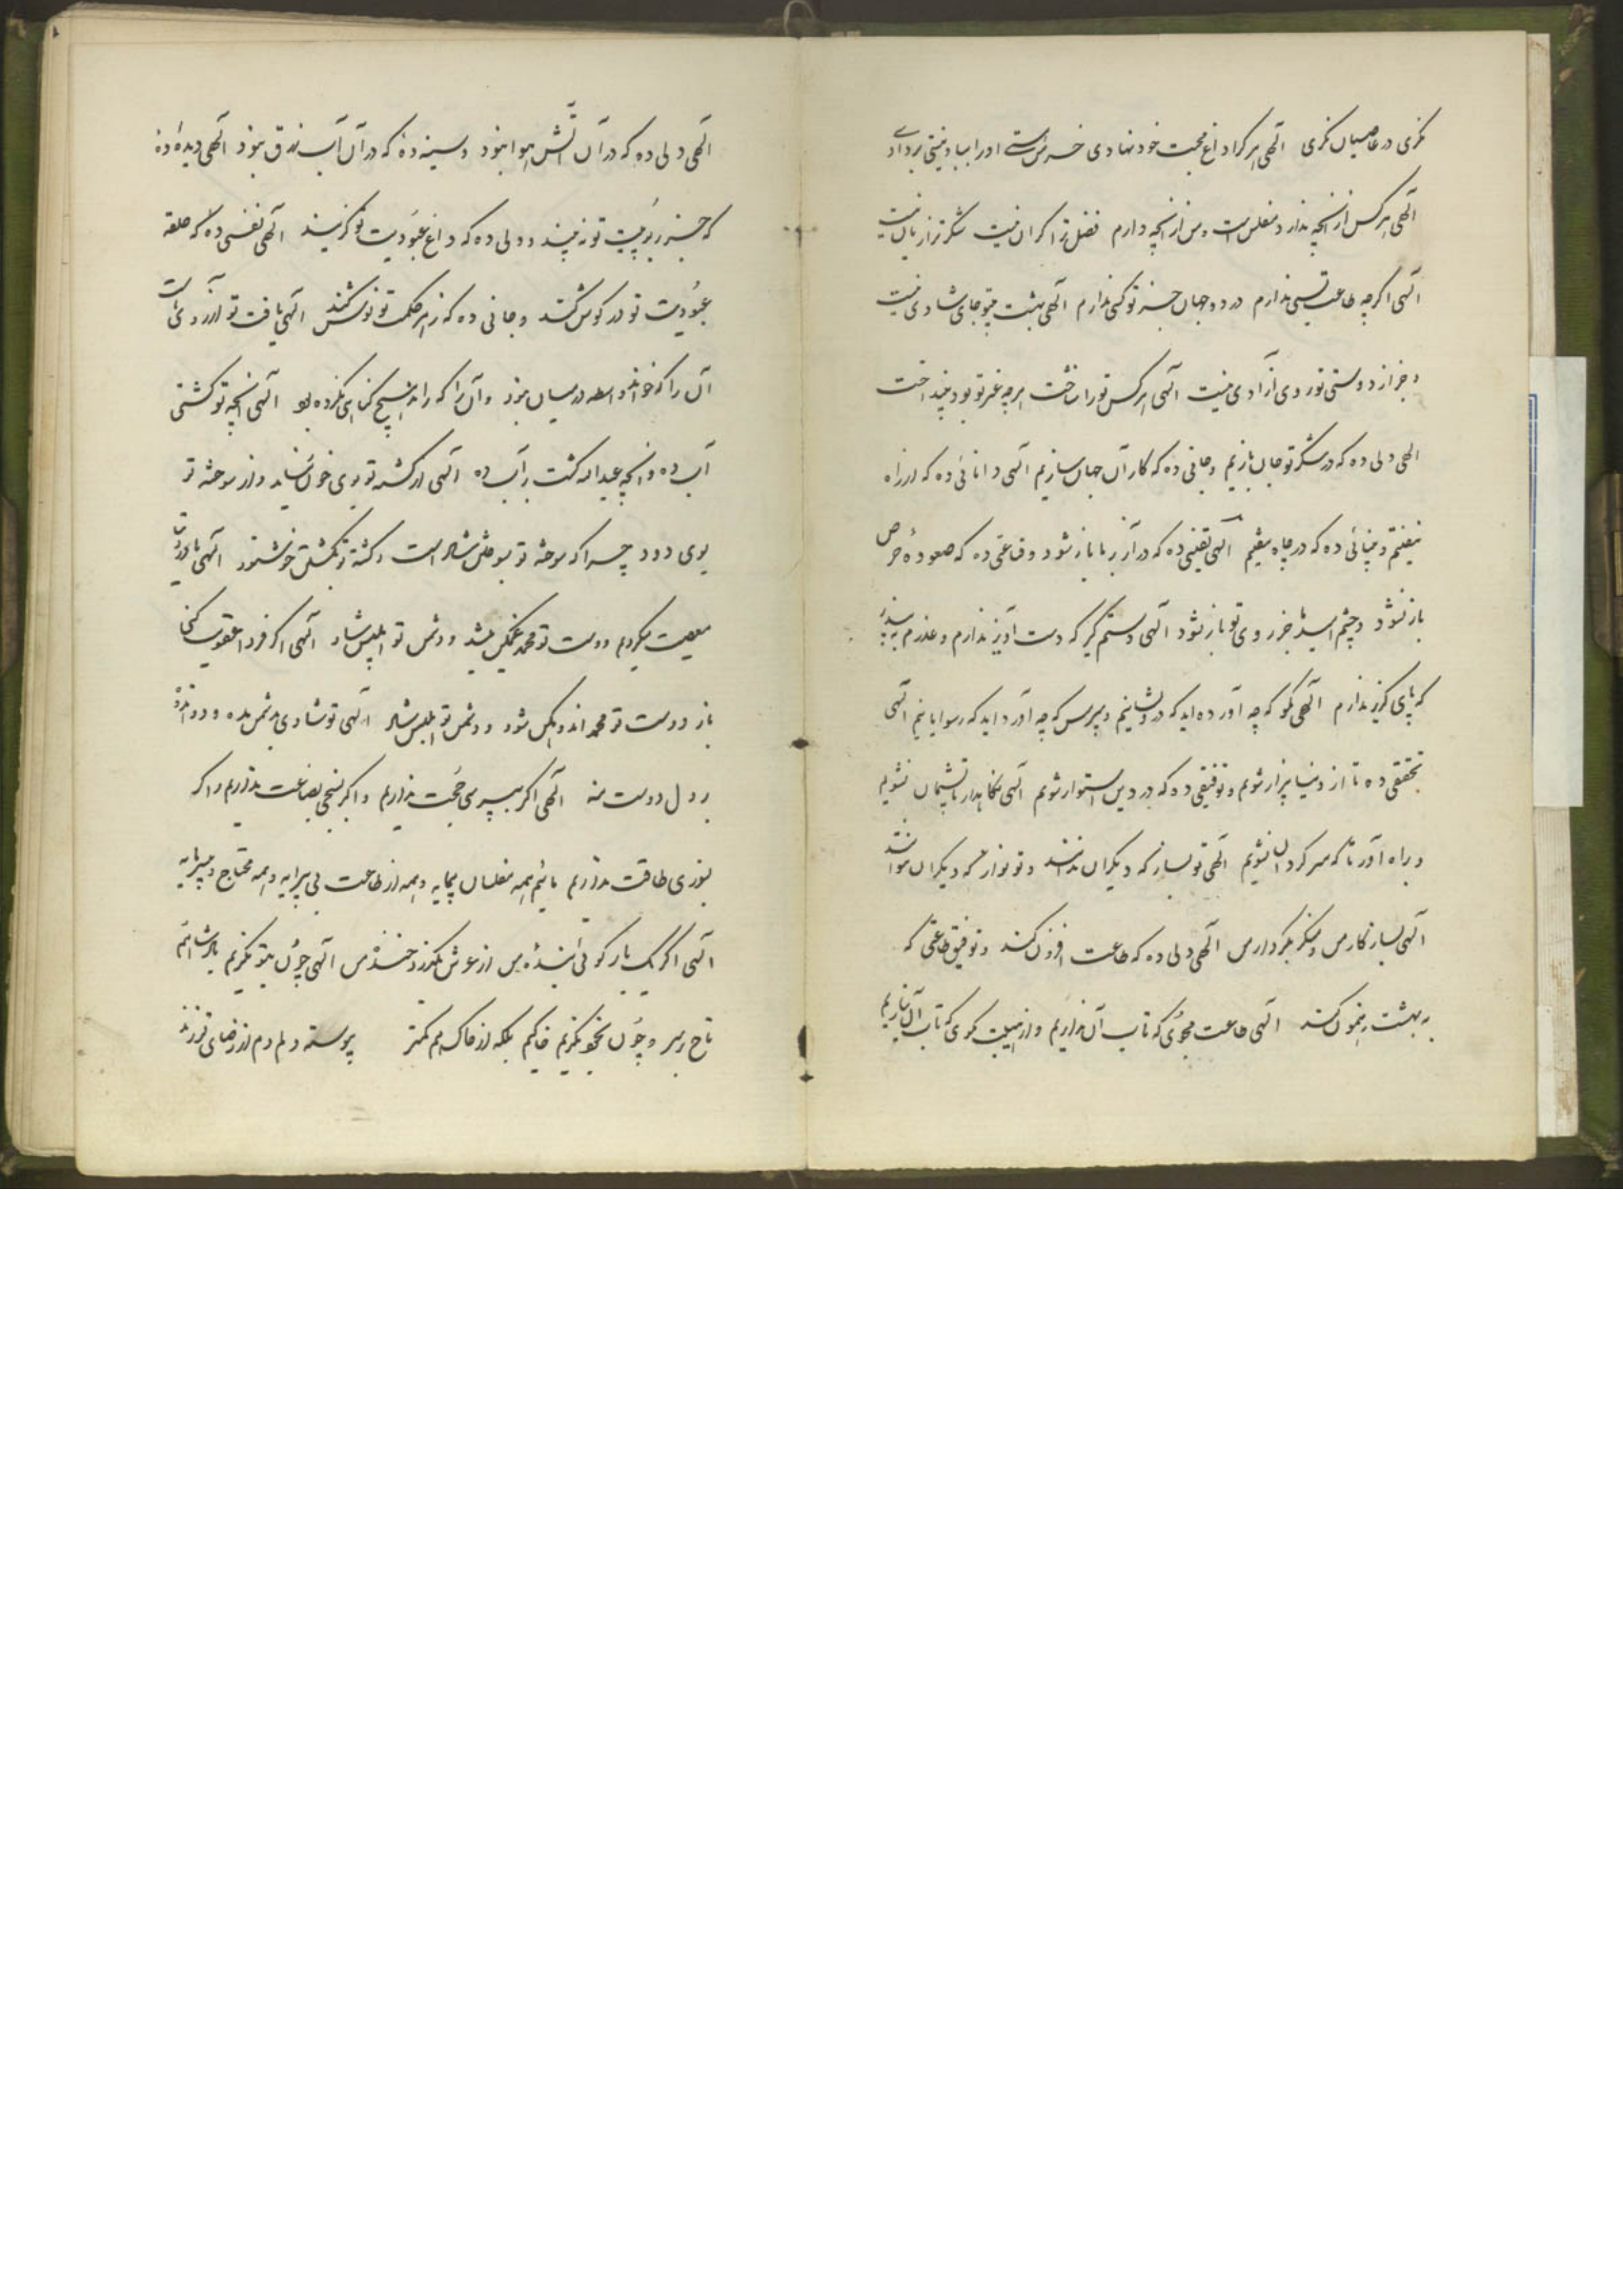 نگری در عاصیان نگری الهی هر کرا داغ محبت خود نهادی خرمن هستی او را بباد نیستی بردادی
الهی هر کس از آنچه ندارد مفلس است و من از آنچه دارم فضل ترا کران نیست شکر ترا زبان نیست
الهی اگر چه طاعت بسی ندارم در دو جهان جز تو کسی ندارم الهی بهشت بیتو جای شادی نیست
و جز از دوستی تو روی آزادی نیست الهی هر کس تو را شناخت هر چه غیر تو بود بینداخت
الهی دلی ده که در شکر تو جان بازیم و جانی ده که کار آن جهان سازیم الهی دانائی ده که از راه
نیفتیم و بینائی ده که در چاه نیفتیم الهی یقینی ده که در آز بر ما باز نشود و قناعتی ده که صعوهٔ حرص
باز نشود و چشم امید جز بر روی تو باز نشود الهی دستم گیر که دست آویز ندارم و عذرم بپذیر
که پای گریز ندارم الهی مگو که چه آورده‌اید که درویشانیم و مپرس که چه آورده اید که رسوایانیم الهی
تحقیقی ده تا از دنیا بیزار شویم و توفیقی ده که در دین استوار شویم الهی نگاهدار تا پشیمان نشویم
و براه آور تا که سرگردان نشویم الهی تو بساز که دیگران ندانند و تو نواز که دیگران نتوانند
الهی بساز کار من و منگر بکردار من الهی دلی ده که طاعت افزون کند و توفیق طاعتی که
به بهشت رهنمون کند الهی طاعت مجوی که تاب آن نداریم و از هیبت مگوی که تاب آن نیاریم
الهی دلی ده که در آن آتش هوا نبود و سینه ده که در آن آب زرق نبود الهی دیده ده
که جز ربوبیت تو نه بیند و دلی ده که داغ عبودیت تو گزیند الهی نفسی ده که حلقه
عبودیت تو در گوش کند و جانی ده که زهر حکمت تو نوش کند الهی یافت تو آرزوی ماست
آن را که خواندی واسطه در میان نبود و آن را که راندی هیچ گناهی نکرده بود الهی آنچه تو کشتی
آب ده و آنچه عبداله کشت بر آب ده الهی از کشته تو بوی خون نیاید و از سوخته تو
بوی دود چرا که سوخته تو بسوختن شاد است و کشته تو بکشتن خوشنود الهی
معصیت میکردم دوست تو محمد غمگین میشد و دشمن تو ابلیس شاد الهی اگر فردا عقوبت کنی
باز دوست تو محمد اندوهگین شود و دشمن تو ابلیس شاد الهی تو شادی بدشمن مده و دو اندوه
بر دل دوست منه الهی اگر بپرسی حجت نداریم و اگر بسنجی بضاعت نداریم و اگر
بسوزی طاقت نداریم مائیم همه مفلسان بیمایه و همه از طاعت بی پیرایه و همه محتاج و بی سرمایه
الهی اگر یک بار گوئی بنده من از عرش بگذرد خنده من الهی چون بتو نگریم پادشاهیم
تاج بر سر و چون بخود نگریم خاکیم بلکه از خاک هم کمتر پیوسته دلم دم از رضای تو زند